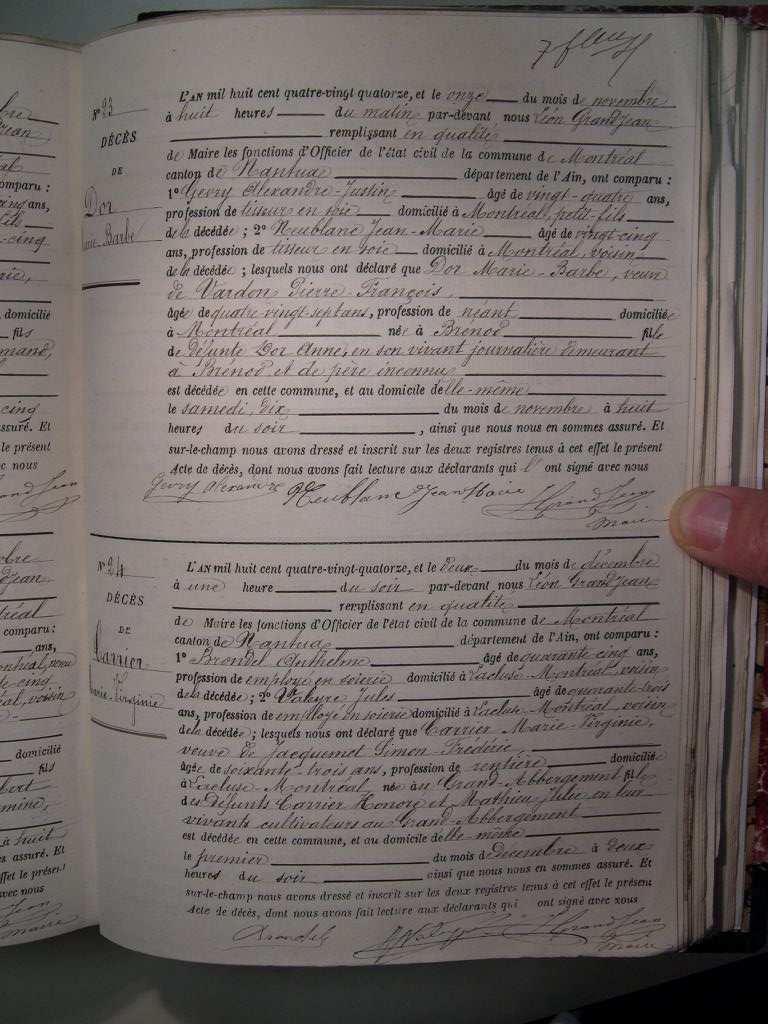 7
N° 23
DÉCÈS
DE
Dor
Marie Barbe
L'AN mil huit cent quatre-vingt quatorze, et le onze du mois de novembre
à huit heures du matin par-devant nous Léon Grandjean
remplissant en qualité
de Maire les fonctions d'Officier de l'état civil de la commune de Montréal
canton de Nantua département de l'Ain, ont comparu :
1° Gevry Alexandre-Justin âgé de vingt-quatre ans,
profession de tisseur en soie domicilié à Montréal, petit-fils
de la décédée ; 2° Neublanc Jean-Marie âgé de vingt-cinq
ans, profession de tisseur en soie domicilié à Montréal, voisin
de la décédée ; lesquels nous ont déclaré que Dor Marie-Barbe, veuve
de Vardon Pierre François,
âgée de quatre-vingt-sept ans, profession de néant domiciliée
à Montréal née à Brénod fille
de défunte Dor Anne, en son vivant journalière demeurant
à Brénod et de père inconnu
est décédée en cette commune, et au domicile d'elle-même
le samedi, dix du mois de novembre à huit
heures du soir , ainsi que nous nous en sommes assuré. Et
sur-le-champ nous avons dressé et inscrit sur les deux registres tenus à cet effet le présent
Acte de décès, dont nous avons fait lecture aux déclarants qui l' ont signé avec nous
Gevry Alexandre Neublanc Jean Marie L Grand Jean
maire
N° 24
DÉCÈS
DE
Carrier
Marie-Virginie
L'AN mil huit cent quatre-vingt-quatorze, et le deux du mois de décembre
à une heure du soir par-devant nous Léon Grandjean
remplissant en qualité
de Maire les fonctions d'Officier de l'état civil de la commune de Montréal
canton de Nantua département de l'Ain, ont comparu :
1° Brondel Anthelme âgé de quarante-cinq ans,
profession de employé en soierie domicilié à Lacluse-Montréal voisin
de la décédée ; 2° Valeyre Jules âgé de quarante-trois
ans, profession de employé en soierie domicilié à Lacluse-Montréal, voisin
de la décédée ; lesquels nous ont déclaré que Carrier Marie-Virginie,
veuve de Jacquemet Simon-Frédéric
âgée de soixante-trois ans, profession de rentière domiciliée
à Lacluse-Montréal née au Grand-Abbergement fille
des défunts Carrier Honoré et Mathieu Julie en leur
vivants cultivateurs au Grand-Abbergement
est décédée en cette commune, et au domicile d'elle-même
le premier du mois de décembre à deux
heures du soir ainsi que nous nous en sommes assuré. Et
sur-le-champ nous avons dressé et inscrit sur les deux registres tenus à cet effet le présent
Acte de décès, dont nous avons fait lecture aux déclarants qui ont signé avec nous
L Grand Jean
maire